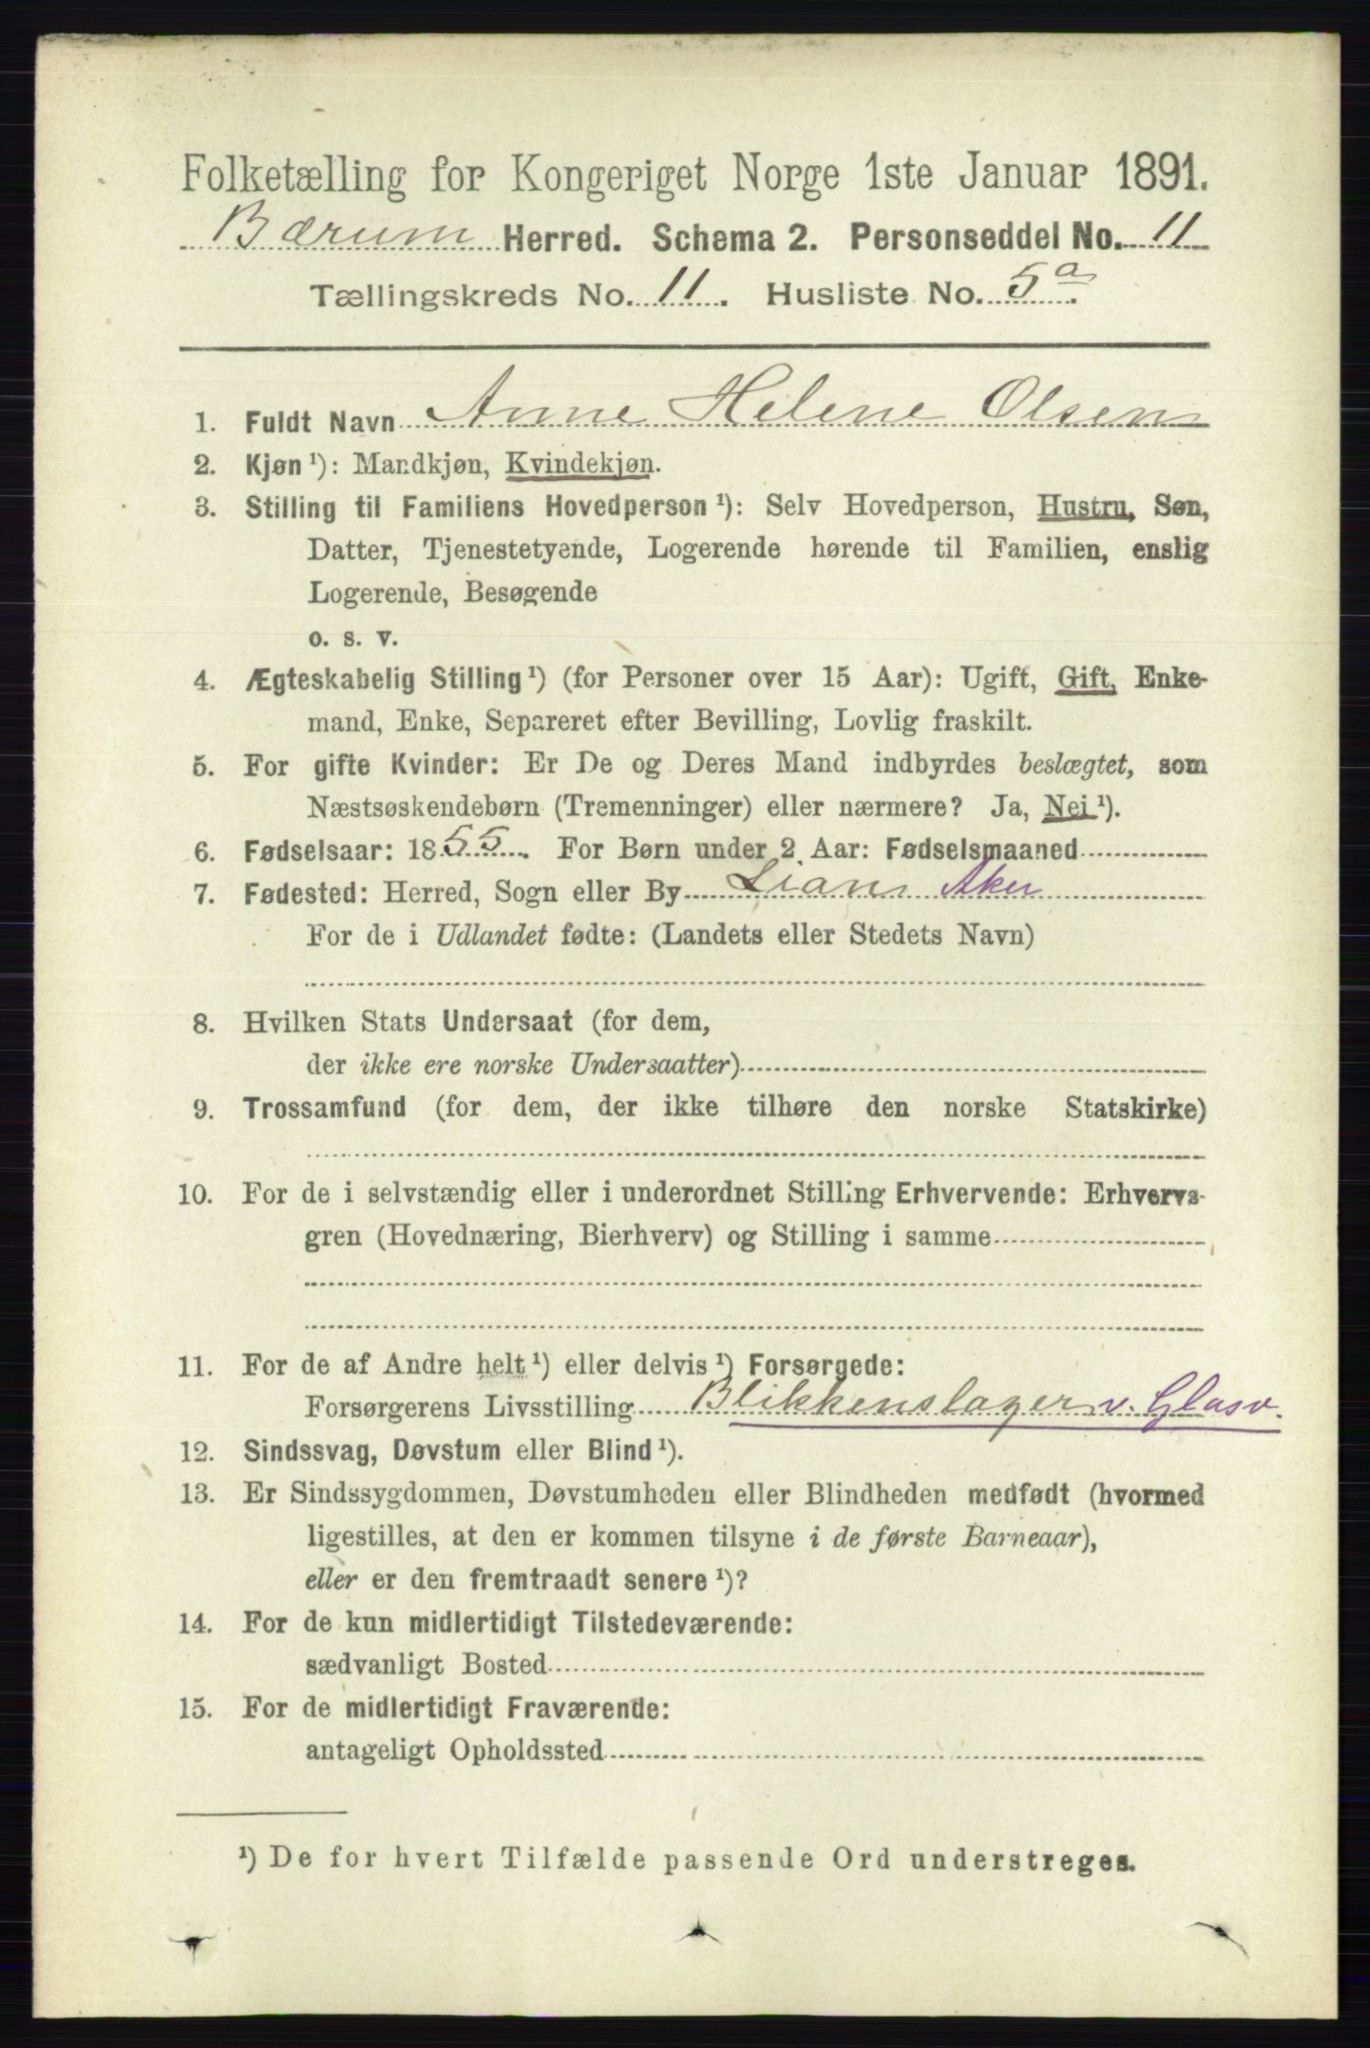 Folketælling for Kongeriget Norge 1ste Januar 1891.
Bærum Herred. Schema 2. Personseddel No. 11
Tællingskreds No. 11. Husliste No. 5a.
1. Fuldt Navn Anne Helene Olsen
2. Kjøn¹): Mandkjøn, Kvindekjøn.
3. Stilling til Familiens Hovedperson¹): Selv Hovedperson, Hustru, Søn,
Datter, Tjenestetyende, Logerende hørende til Familien, enslig
Logerende, Besøgende
o. s. v.
4. Ægteskabelig Stilling¹) (for Personer over 15 Aar): Ugift, Gift, Enke-
mand, Enke, Separeret efter Bevilling, Lovlig fraskilt.
5. For gifte Kvinder: Er De og Deres Mand indbyrdes beslægtet, som
Næstsøskendebørn (Tremenninger) eller nærmere? Ja, Nei¹).
6. Fødselsaar: 1855. For Børn under 2 Aar: Fødselsmaaned
7. Fødested: Herred, Sogn eller By Lian Aker
For de i Udlandet fødte: (Landets eller Stedets Navn)
8. Hvilken Stats Undersaat (for dem,
der ikke ere norske Undersaatter)
9. Trossamfund (for dem, der ikke tilhøre den norske Statskirke)
10. For de i selvstændig eller i underordnet Stilling Erhvervende: Erhvervs-
gren (Hovednæring, Bierhverv) og Stilling i samme
11. For de af Andre helt¹) eller delvis¹) Forsørgede:
Forsørgerens Livsstilling Blikkenslager v. Glasv.
12. Sindssvag, Døvstum eller Blind¹).
13. Er Sindssygdommen, Døvstumheden eller Blindheden medfødt (hvormed
ligestilles, at den er kommen tilsyne i de første Barneaar),
eller er den fremtraadt senere¹)?
14. For de kun midlertidigt Tilstedeværende:
sædvanligt Bosted
15. For de midlertidigt Fraværende:
antageligt Opholdssted
¹) De for hvert Tilfælde passende Ord understreges.